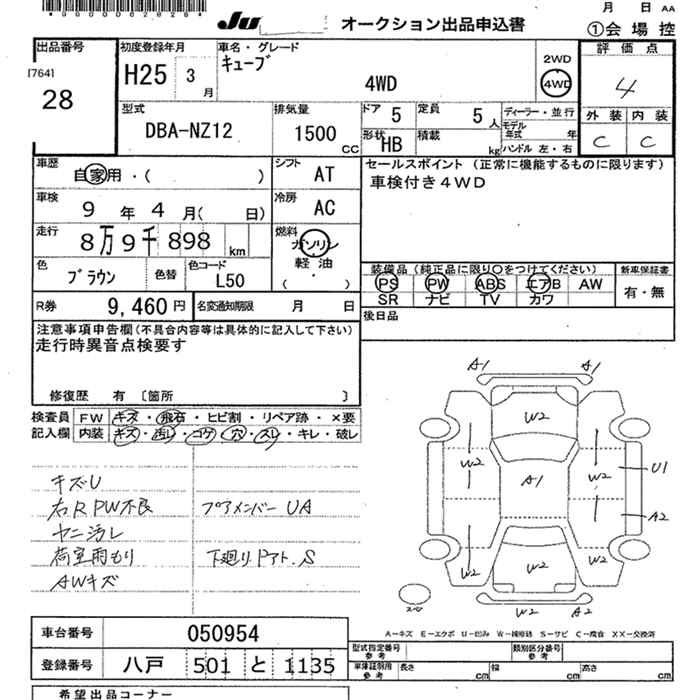 *0000028284*
Ju オークション出品申込書
月 日 AA
①会場控
出品番号
[7641
28
初度登録年月
H25 3月
車名・グレード
キューブ
4WD
2WD
4WD
評価点
4
外装 内装
C C
型式
DBA-NZ12
排気量
1500 CC
ドア 5
定員 5人
形状 HB
積載 kg
ディーラー・並行
モデル年式 年
ハンドル 左・右
車歴
自家用・( )
シフト
AT
セールスポイント (正常に機能するものに限ります)
車検付き4WD
車検
9年4月( 日)
冷房
AC
走行
8万9千898km
燃料
ガソリン
軽油
( ・ )
色
ブラウン
色替
色コード
L50
装備品(純正品に限り○をつけてください)
PS PW ABS エアB AW
SR ナビ TV カワ
新車保証書
有・無
R券 9,460円
名変通知期限 月 日
後日品
注意事項申告欄(不具合内容等は具体的に記入して下さい)
走行時異音点検要す
修復歴 有 〔箇所 〕
検査員記入欄
FW キズ・飛石・ヒビ割・リペア跡・×要
内装 キズ・汚れ・コゲ・穴・スレ・キレ・破レ
キズU
右R PW不良
ヤニ汚レ
荷室雨もり
AWキズ
コアメンバー UA
下廻りドアト.S
A1 A1
W2
W2 A1 W2 U1
W2 W2 A2
W2 W2 W2
W2 A2
スペア
A-キズ E-エクボ U-凹み W-補修跡 S-サビ C-腐食 XX-交換済
車台番号 050954
登録番号 八戸 501 と 1135
型式指定番号 参考
類別区分番号 参考
車庫証明用 参考 長さ cm 幅 cm 高さ cm
希望出品コーナー